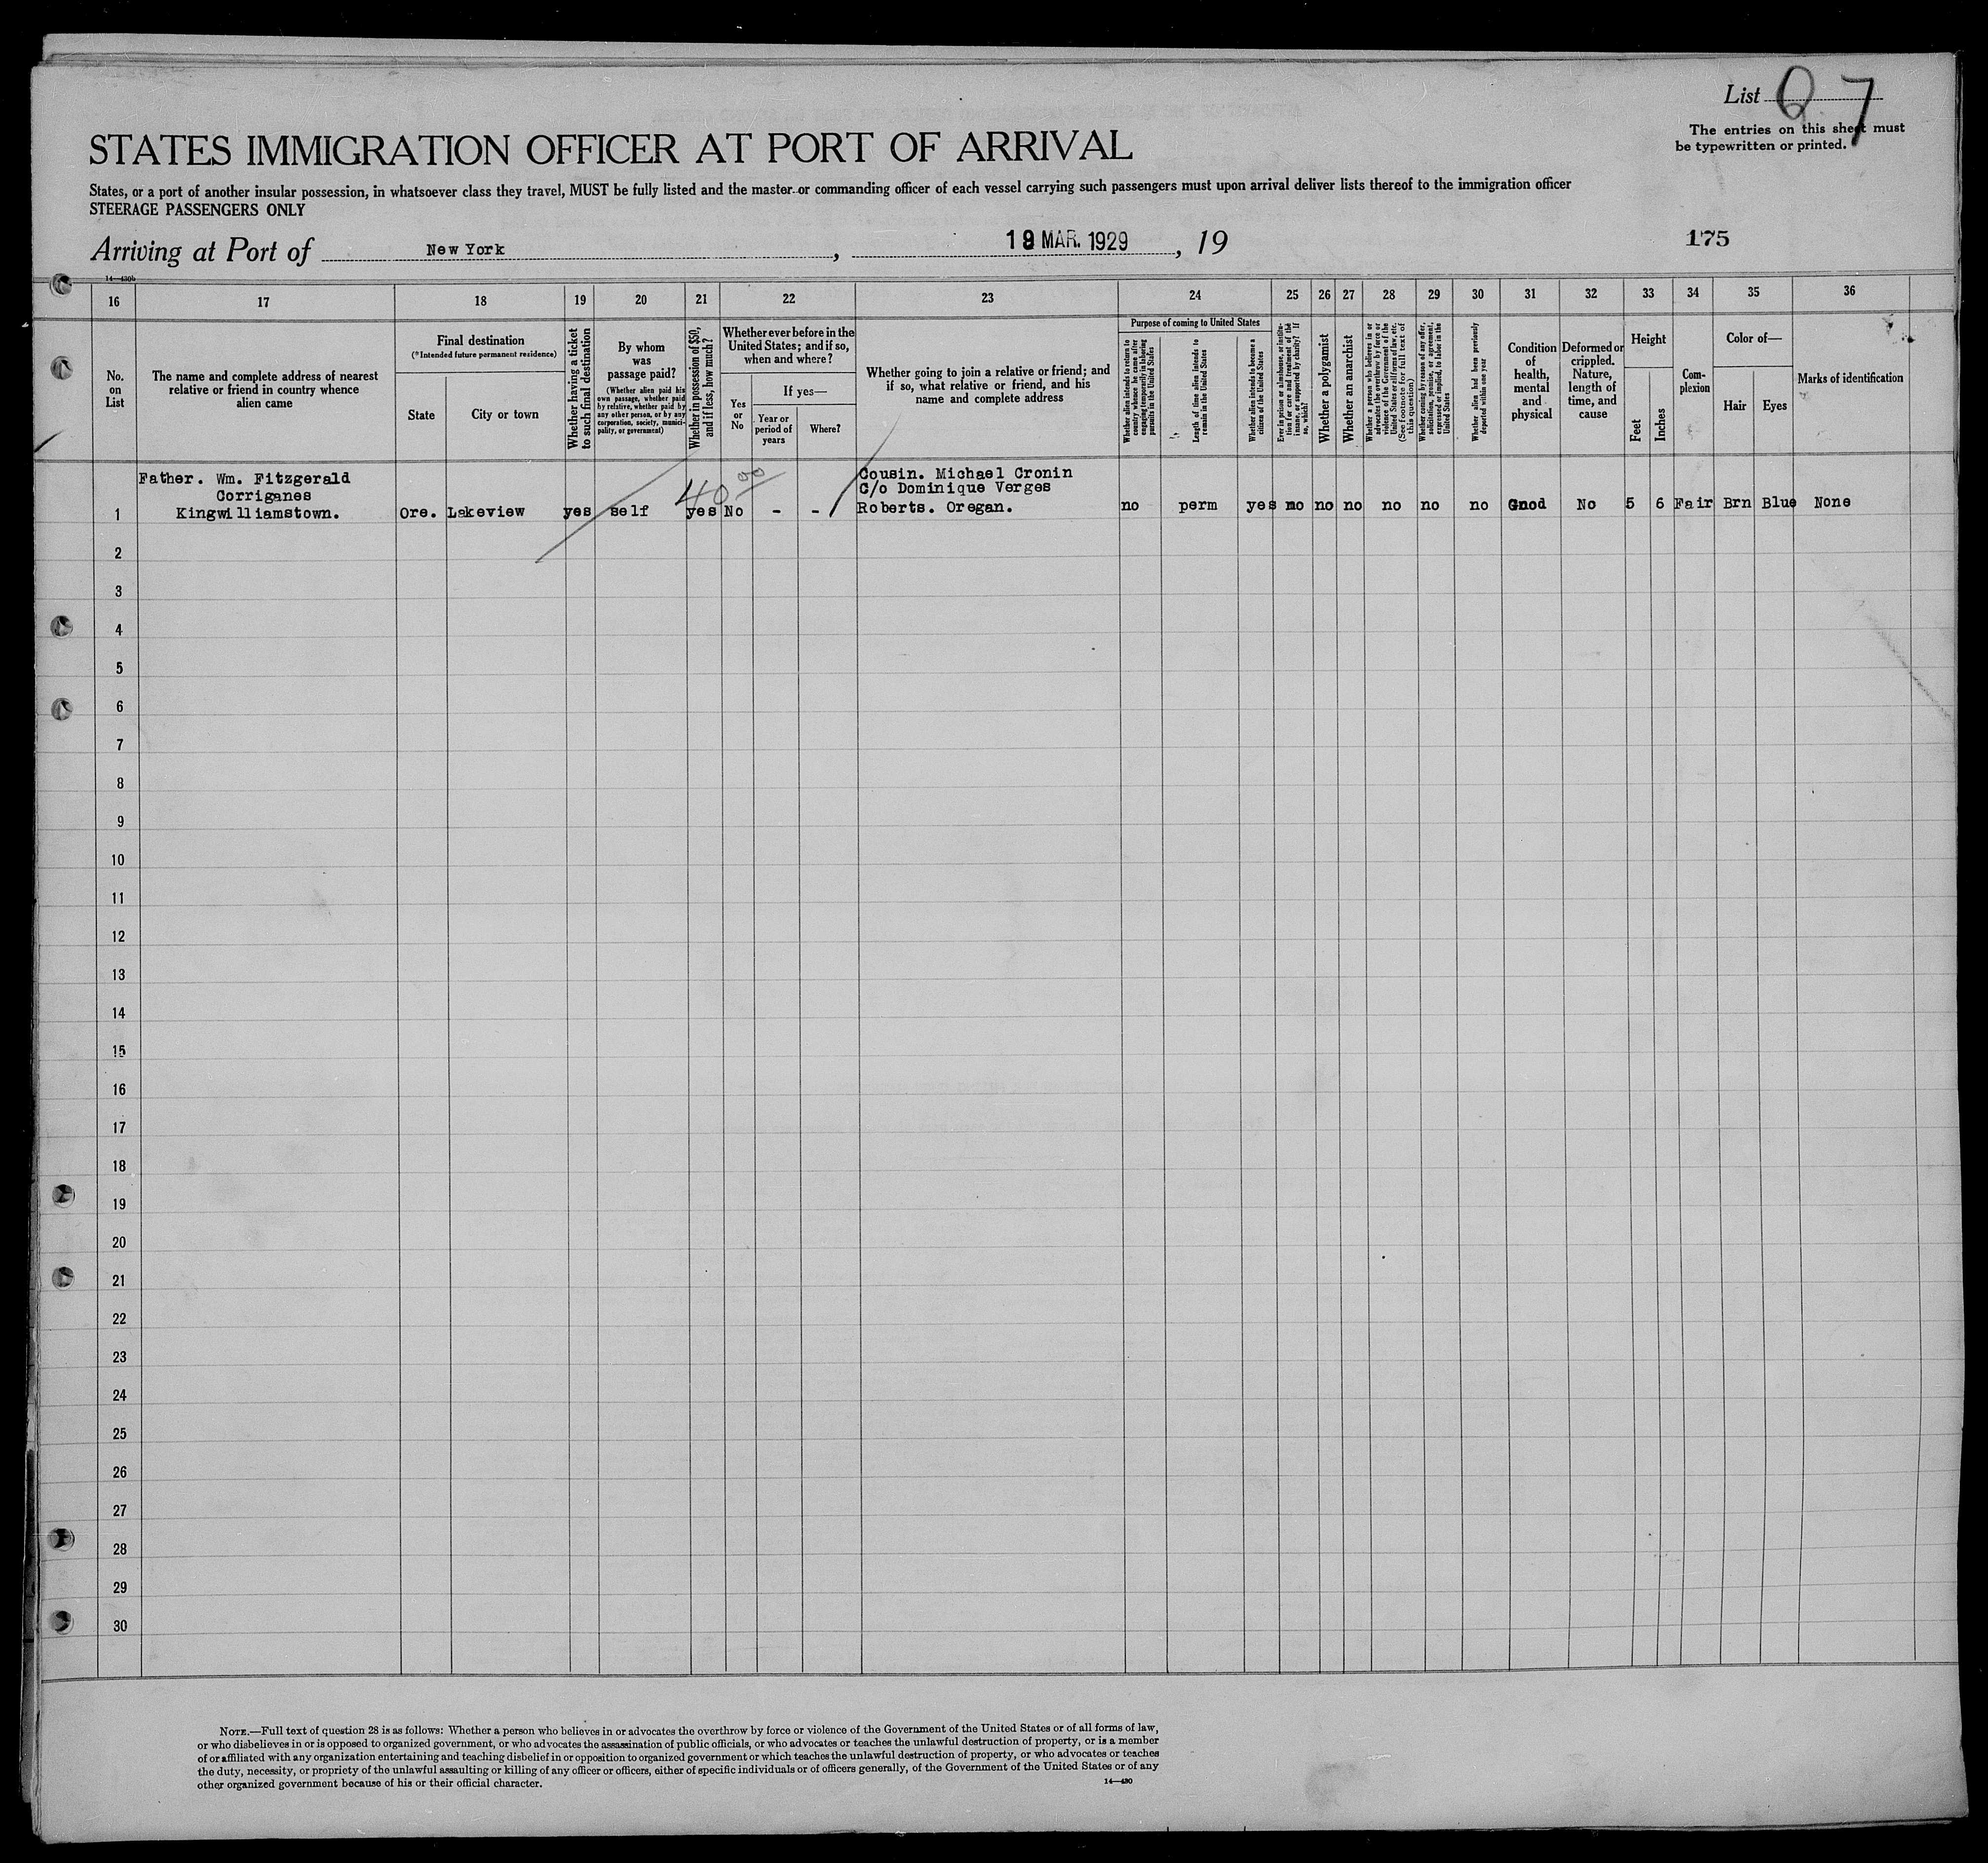 List Q 7
The entries on this sheet must
be typewritten or printed.
STATES IMMIGRATION OFFICER AT PORT OF ARRIVAL
States, or a port of another insular possession, in whatsoever class they travel, MUST be fully listed and the master or commanding officer of each vessel carrying such passengers must upon arrival deliver lists thereof to the immigration officer
STEERAGE PASSENGERS ONLY
Arriving at Port of New York, 19 MAR. 1929, 19
175
14—430b
16 17 18 19 20 21 22 23 24 25 26 27 28 29 30 31 32 33 34 35 36
No.
on
List
The name and complete address of nearest
relative or friend in country whence
alien came
Final destination
(*Intended future permanent residence)
State
City or town
Whether having a ticket
to such final destination
By whom
was
passage paid?
(Whether alien paid his
own passage, whether paid
by relative, whether paid by
any other person, or by any
corporation, society, munici-
pality, or government)
Whether in possession of $50,
and if less, how much?
Whether ever before in the
United States; and if so,
when and where?
Yes
or
No
If yes—
Year or
period of
years
Where?
Whether going to join a relative or friend; and
if so, what relative or friend, and his
name and complete address
Purpose of coming to United States
Whether alien intends to return to
country whence he came after
engaging temporarily in laboring
pursuits in the United States
Length of time alien intends to
remain in the United States
Whether alien intends to become a
citizen of the United States
Ever in prison or almshouse, or institu-
tion for care and treatment of the
insane, or supported by charity? If
so, which?
Whether a polygamist
Whether an anarchist
Whether a person who believes in or
advocates the overthrow by force or
violence of the Government of the
United States or all forms of law, etc.
(See footnote for full text of
this question)
Whether coming by reason of any offer,
solicitation, promise, or agreement,
expressed or implied, to labor in the
United States
Whether alien had been previously
deported within one year
Condition
of
health,
mental
and
physical
Deformed or
crippled.
Nature,
length of
time, and
cause
Height
Feet
Inches
Com-
plexion
Color of—
Hair
Eyes
Marks of identification
Father. Wm. Fitzgerald
Corriganes
Kingwilliamstown.
40 00
Cousin. Michael Cronin
C/o Dominique Verges
Roberts. Oregan.
1 Ore. Lakeview yes self yes No - - no perm yes no no no no no no Good No 5 6 Fair Brn Blue None
2
3
4
5
6
7
8
9
10
11
12
13
14
15
16
17
18
19
20
21
22
23
24
25
26
27
28
29
30
NOTE.—Full text of question 28 is as follows: Whether a person who believes in or advocates the overthrow by force or violence of the Government of the United States or of all forms of law,
or who disbelieves in or is opposed to organized government, or who advocates the assassination of public officials, or who advocates or teaches the unlawful destruction of property, or is a member
of or affiliated with any organization entertaining and teaching disbelief in or opposition to organized government or which teaches the unlawful destruction of property, or who advocates or teaches
the duty, necessity, or propriety of the unlawful assaulting or killing of any officer or officers, either of specific individuals or of officers generally, of the Government of the United States or of any
other organized government because of his or their official character.
14—430